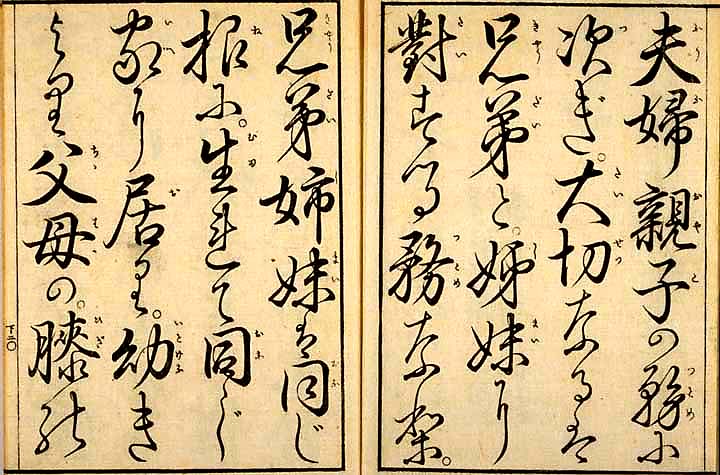 夫婦親子の務に
次ぎ。大切なるは
兄弟と。姊妹に
對する務なり。
兄弟姉妹は同じ
根に。生れて同じ
家に居り。幼き
より父母の。膝の
下二〇